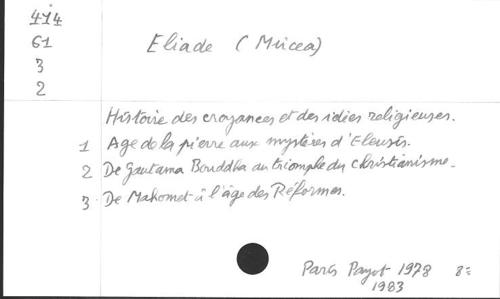 414
61
3
2
Eliade (Mircea)
Histoire des croyances et des idées religieuses.
1 Age de la pierre aux mystères d'Eleusis.
2 De Gautama Bouddha au triomphe du christianisme.
3. De Mahomet à l'âge des Réformes.
Paris Payot 1978 8º
1983